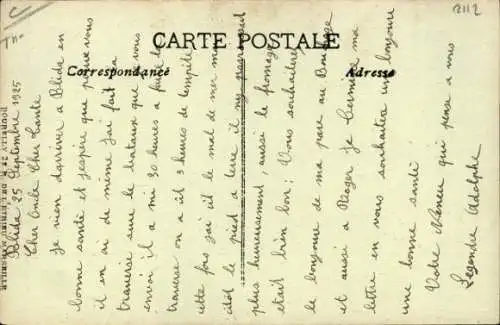 C
Tho
2112
CARTE POSTALE
Correspondance
Adresse
Blida 25 Septembre 1925
Cher Oncle Cher Tante
Je vien d'arriver a Blida en
bonne santé et j'espère que vous
il en ai de même j'ai fait la
traversie sur le bataux que vous
envoi il a mi 30 heures a faire la
traverse on a ut 3 heures de tempête
cette fois j'ai ut le mal de mer mai
citôt le pied a terre il ny paraissait
plus heureusement, aussi le fromage
etait bien bon. Vous souhaiterez
le bonjoure de ma pare au
et aussi a Roger Je termine ma
lettre en vous souhaiter un bonjoure
une bonne santé
Votre Neveu qui pense a vous
Legendre Adolphe